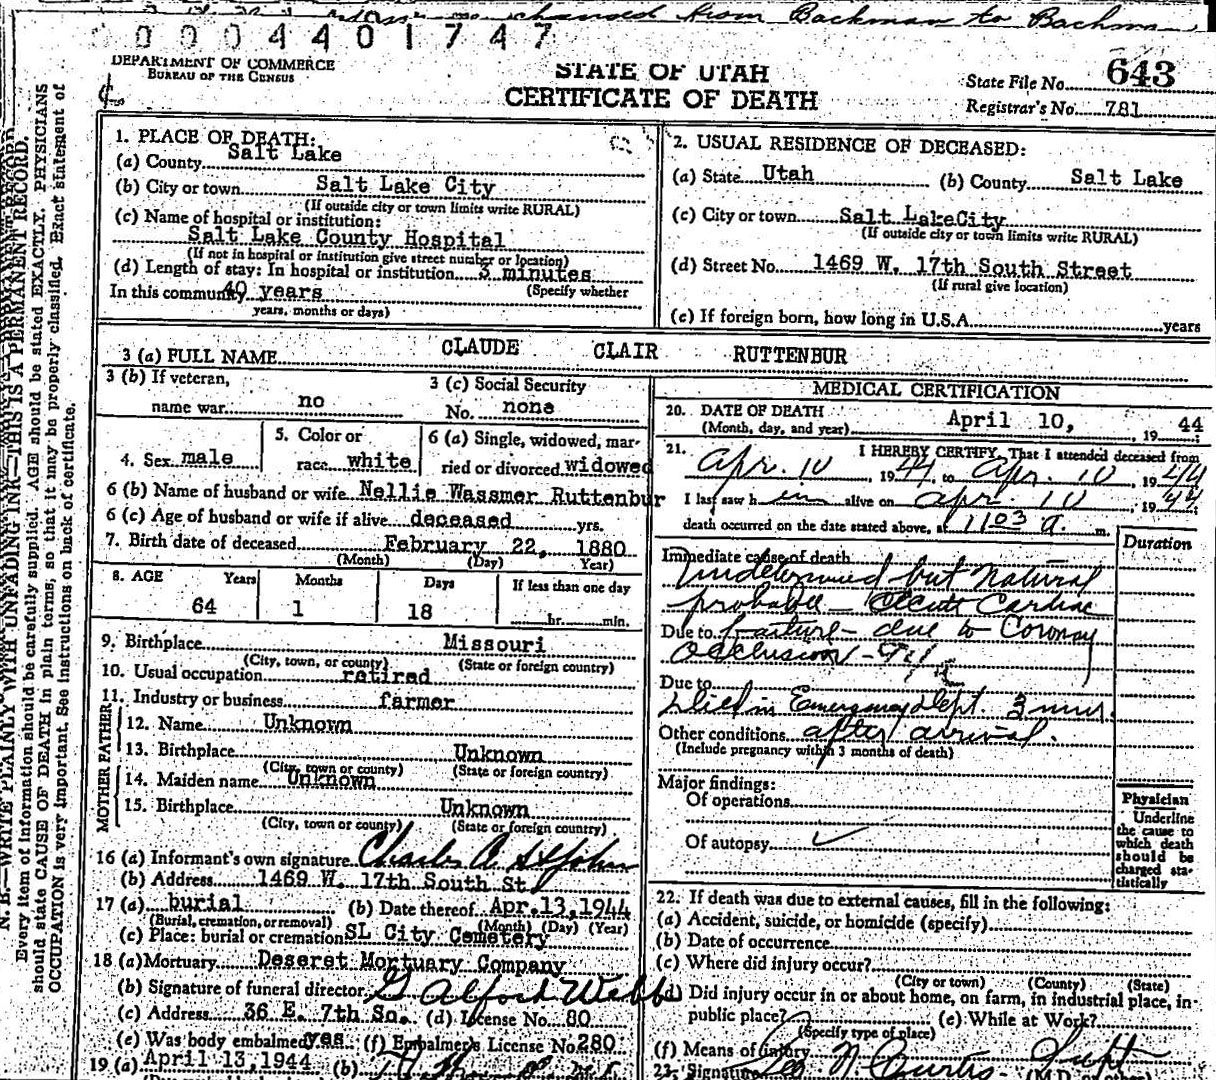 changed from Backman to Bachman
0004401747
DEPARTMENT OF COMMERCE
BUREAU OF THE CENSUS
STATE OF UTAH
CERTIFICATE OF DEATH
State File No. 643
Registrar's No. 781
N. B.—WRITE PLAINLY WITH UNFADING INK—THIS IS A PERMANENT RECORD.
Every item of information should be carefully supplied. AGE should be stated EXACTLY. PHYSICIANS
should state CAUSE OF DEATH in plain terms, so that it may be properly classified. Exact statement of
OCCUPATION is very important. See instructions on back of certificate.
1. PLACE OF DEATH:
(a) County Salt Lake
(b) City or town Salt Lake City
(If outside city or town limits write RURAL)
(c) Name of hospital or institution:
Salt Lake County Hospital
(If not in hospital or institution give street number or location)
(d) Length of stay: In hospital or institution 3 minutes
In this community 40 years (Specify whether
years, months or days)
2. USUAL RESIDENCE OF DECEASED:
(a) State Utah (b) County Salt Lake
(c) City or town Salt LakeCity
(If outside city or town limits write RURAL)
(d) Street No. 1469 W. 17th South Street
(If rural give location)
(e) If foreign born, how long in U.S.A. years
3 (a) FULL NAME CLAUDE CLAIR RUTTENBUR
3 (b) If veteran,
name war no
3 (c) Social Security
No. none
4. Sex male
5. Color or
race white
6 (a) Single, widowed, mar-
ried or divorced widowed
6 (b) Name of husband or wife Nellie Wassmer Ruttenbur
6 (c) Age of husband or wife if alive deceased yrs.
7. Birth date of deceased February 22, 1880
(Month) (Day) Year)
8. AGE Years Months Days If less than one day
64 1 18 hr. min.
9. Birthplace Missouri
(City, town, or county) (State or foreign country)
10. Usual occupation retired
11. Industry or business farmer
FATHER
12. Name Unknown
13. Birthplace Unknown
(City, town or county) (State or foreign country)
MOTHER
14. Maiden name Unknown
15. Birthplace Unknown
(City, town or county) (State or foreign country)
16 (a) Informant's own signature Charles A StJohn
(b) Address 1469 W. 17th South St.
17 (a) burial (b) Date thereof Apr.13,1944
(Burial, cremation, or removal) (Month) (Day) (Year)
(c) Place: burial or cremation SL City Cemetery
18 (a) Mortuary Deseret Mortuary Company
(b) Signature of funeral director G Alford Webb
(c) Address 36 E. 7th So. (d) License No. 80
(e) Was body embalmed yes (f) Embalmer's License No. 280
19 (a) April 13,1944 (b)
MEDICAL CERTIFICATION
20. DATE OF DEATH
(Month, day, and year) April 10, , 19 44
21. I HEREBY CERTIFY, That I attended deceased from
Apr. 10, 1944, to Apr. 10, 1944
I last saw him alive on Apr. 10, 1944;
death occurred on the date stated above, at 1103 a. m.
Duration
Immediate cause of death
Undetermined but Natural
probable - Acute Cardiac
Due to failure - due to Coronary
Occlusion -
Due to
Died in Emergency Dept. 3 min.
Other conditions after arrival.
(Include pregnancy within 3 months of death)
Major findings:
Of operations
Of autopsy ✓
Physician
Underline
the cause to
which death
should be
charged sta-
tistically
22. If death was due to external causes, fill in the following:
(a) Accident, suicide, or homicide (specify)
(b) Date of occurrence
(c) Where did injury occur?
(City or town) (County) (State)
(d) Did injury occur in or about home, on farm, in industrial place, in
public place? (e) While at Work?
(Specify type of place)
(f) Means of injury
23. Signature Leo N Curtis Supt